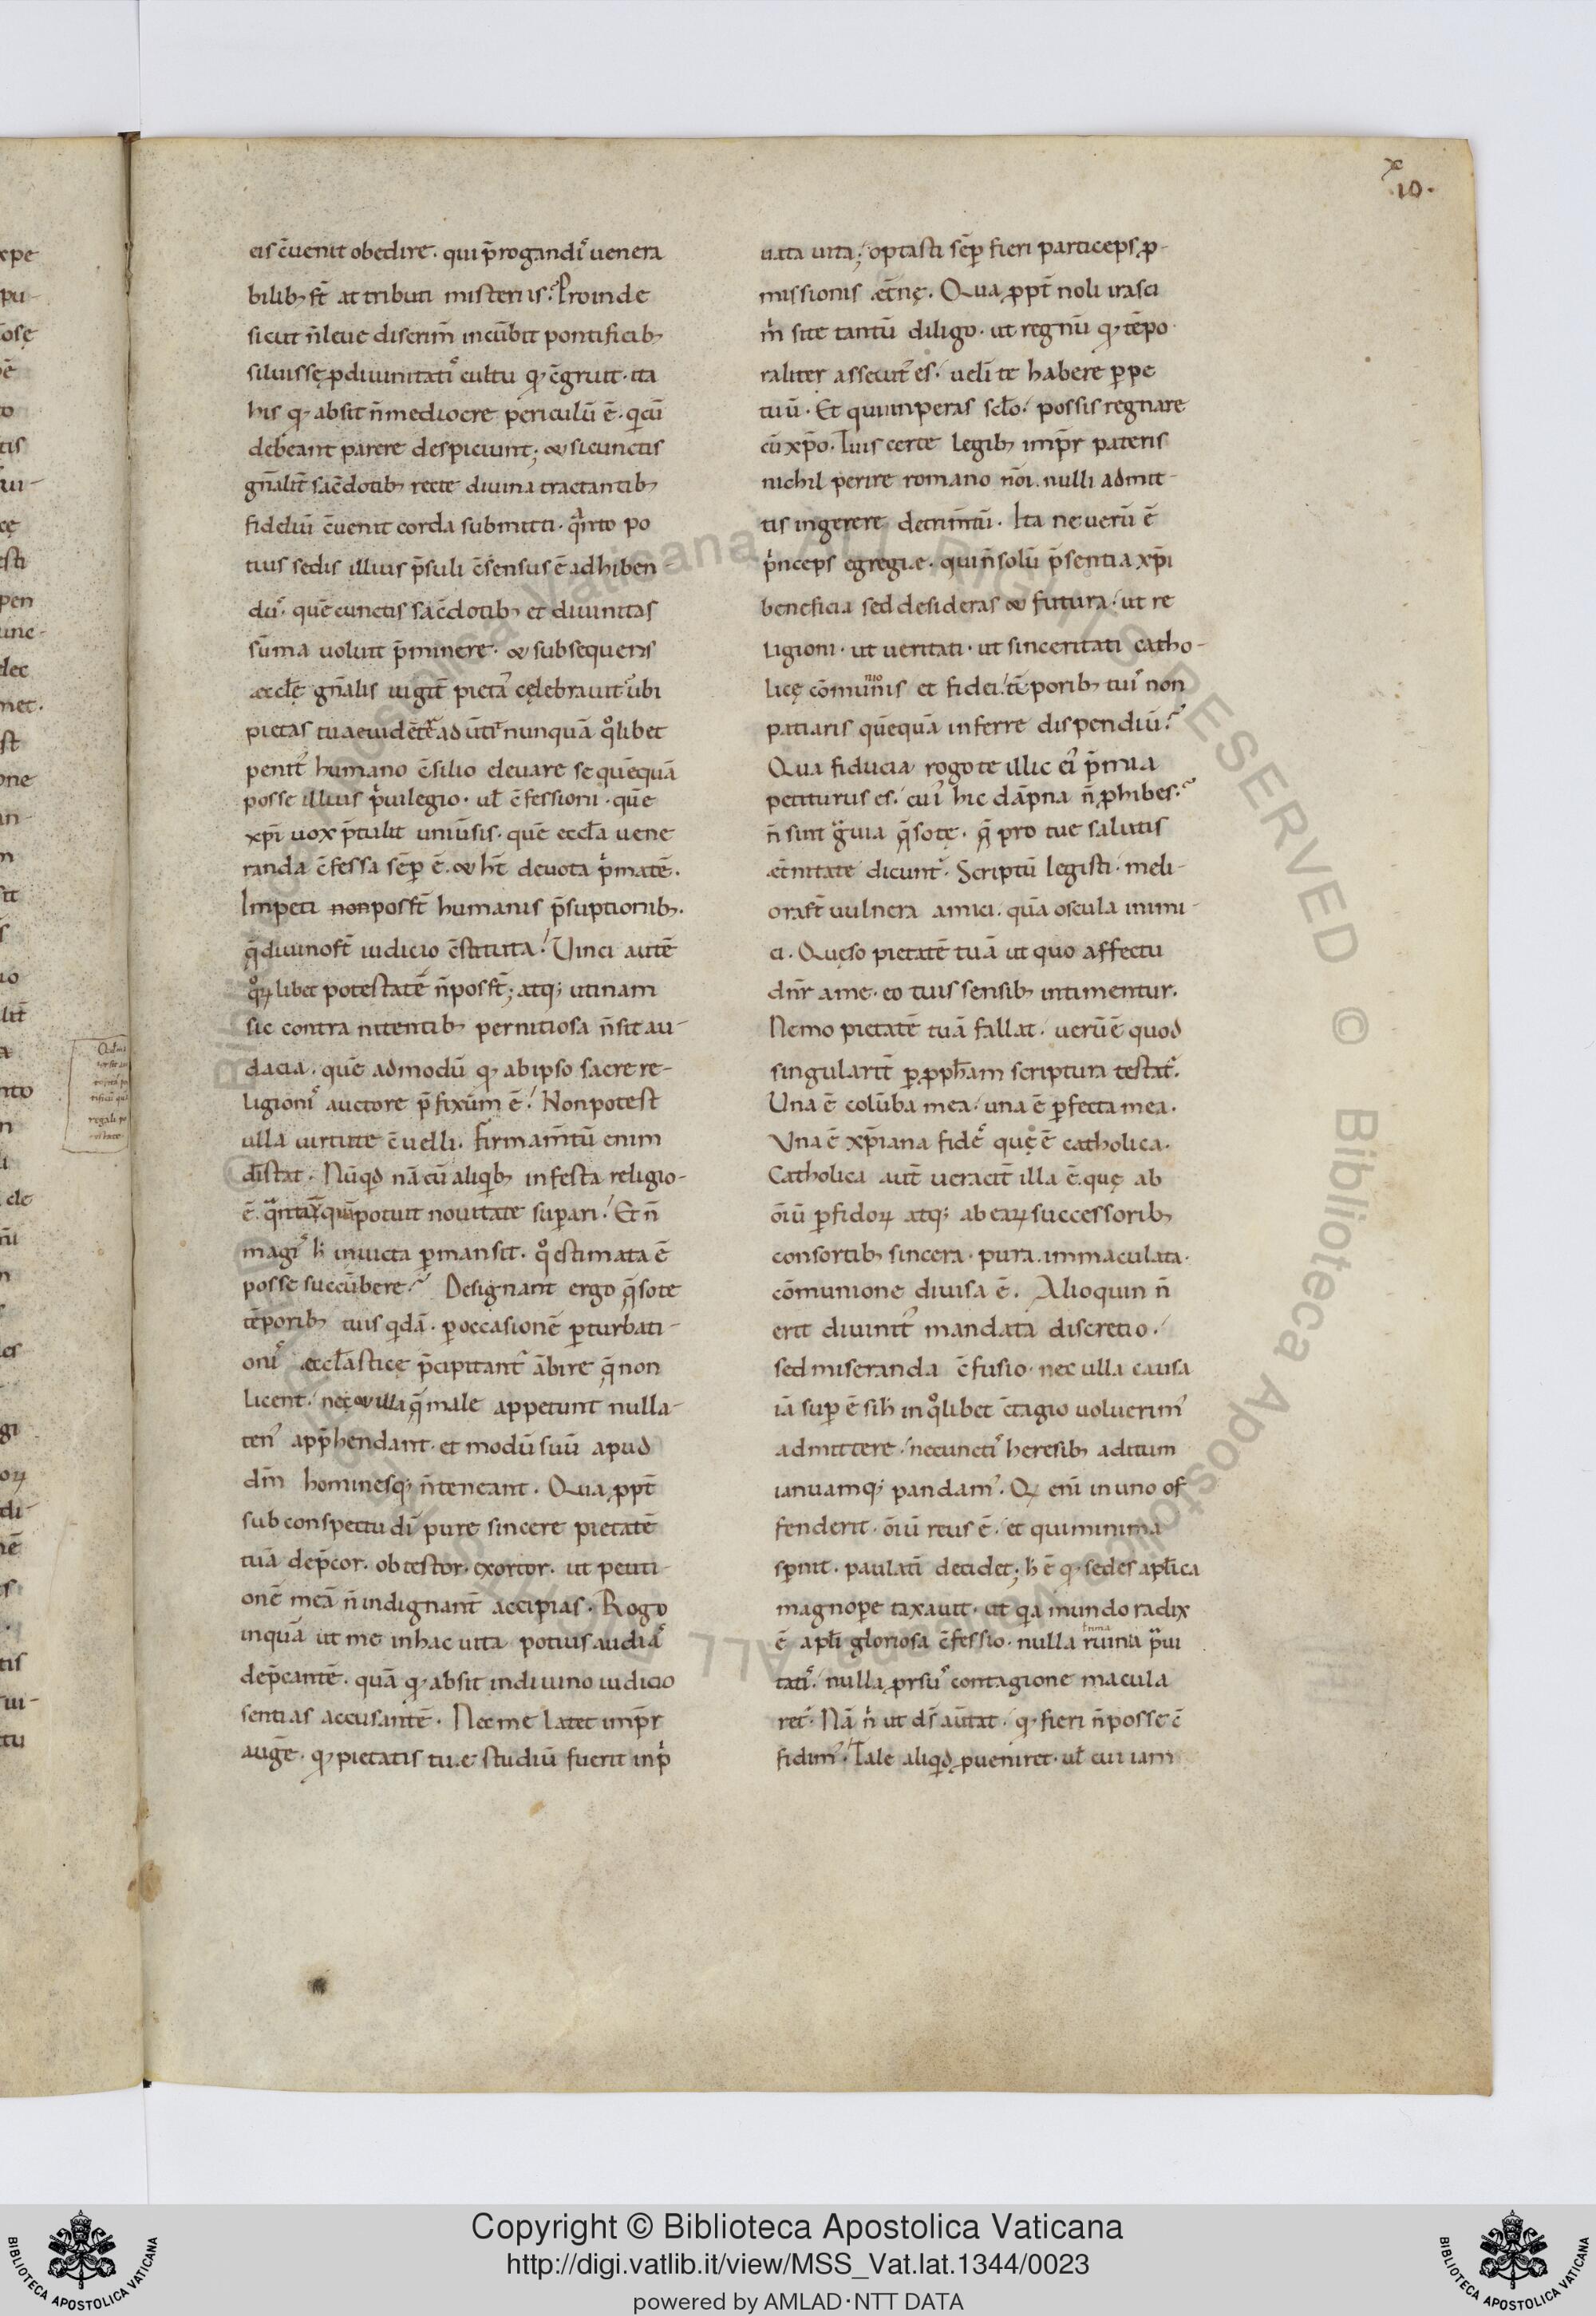 x
10.
eis c̄uenit obedire. qui p̄rogandiˢ uenera
bilibꝫ st̄ attributi misteriis? Proinde
sicut n̄ leue discrim̄ incūbit pontificibꝫ
siluisse ꝓ diuinitatiˢ cultu qꝫ c̄gruit. ita
his qꝫ absit n̄ mediocre periculū ē. qͥ cū
debeant parere despiciunt; & si cunctis
gn̄alit̄ sac̄dotibꝫ recte diuina tractantibꝫ
fideliū c̄uenit corda submitti. qͣnto po
tius sedis illius p̄suli c̄sensus ē adhiben-
duˢ. quē cunctis sac̄dotibꝫ et diuinitas
sūma uoluit p̄minere. & subsequens
æccl̄ę gn̄alis iugit̄ pietaˢ cęlebrauit? ubi
pietas tua euidēt̄ aduūtit nunquā qͦlibet
penit᾽ humano c̄silio eleuare se quēquā
posse illius pͥuilegio. ul̄ c̄fessioni. quē
xp̄i uox p̄tulit uniūsis. quē eccl̄a uene
randa c̄fessa sēp ē. & ht̄ deuota pͥmatē.
Impeti non posst̄ humanis p̄suptionibꝫ.
q̄ diuino st̄ iudicio c̄stituta! Uinci autē
qͦrꝫ libet potestatē n̄ posst̄; atqꝫ utinam
sic contra nitentibꝫ pernitiosa n̄ sit au-
dacia. quē admodū qꝫ ab ipso sacre re-
ligioniˢ auctore p̄fixūm ē! Non potest
ulla uirtute c̄uelli. Firmam̄tū enim
d̄i stat. Nūqͥd nā cū aliqͥbꝫ infesta religio-
ē. potuit nouitate suꝑari! Et n̄
magiˢ h̄ inuicta ꝑmansit. qͦ estimata ē
posse succūbere? Designant ergo q̄so te
tēporibꝫ tuis qͥdā. ꝑ occasionē ꝑturbati-
oniˢ æccl̄astice p̄cipitant᾽ ābire q̄ non
licent! nec & illa q̄ male appetunt nulla-
ten᾽ app̄hendant. et modū suū apud
dm̄ hominesqꝫ n̄ teneant. Qua ꝓpt̄
sub conspectu di᾽ pure sincere pietatē
tuā dep̄cor. obtestor. exortor. ut petiti-
onē meā n̄ indignant̄ accipias. Rogo
inquā ut me in hac uita potius audiaˢ
dep̄cantē. quā qꝫ absit in diuino iudicio
sentias accusantē. Nec me latet imp̄r
augē. qꝫ pietatis tu.e studiū fuerit in pͥ
uata uita; optasti sēp fieri particeps ꝓ-
missionis æt̄nę. Qua ꝓpt̄ noli irasci
mͥ si te tantū diligo. ut regnū qꝫ tēpo
raliter assecut᾽ es. ueli᾽ te habere ꝑpe
tuū. Et qui inperas scl̄o. possis regnare
cū xp̄o. Tuis certe legibꝫ imp̄r pateris
nichil perire romano nōi. nulli admit-
tis ingerere detrim̄tū. Ita ne uerū ē
pͥnceps egregi.e. qui n̄ solū p̄sentia xp̄i
beneficia sed desideras & futura! ut re
ligioni. ut ueritati. ut sinceritati catho-
licę cōmunnis et fidei. tēporibꝫ tuiˢ non
patiaris quēquā inferre dispendiū?
Qua fiducia rogo te illic ei᾽ p̄mia
petiturus es. cui᾽ hic dāpna n̄ ꝓhibes?
n̄ sint gͣuia q̄so te. q̄ pro tue salutis
æt̄nitate dicunt᾽. Scriptū legisti. meli-
ora st̄ uulnera amici. quā oscula inimi-
ci. Quęso pietatē tuā ut quo affectu
dn̄r a me. eo tuis sensibꝫ intimentur.
Nemo pietatē tuā fallat. uerū ē quod
singularit̄ ꝑ ꝓph̄am scriptura testat᾽.
Una ē colūba mea. una ē ꝑfecta mea.
Una ē xp̄iana fideˢ quę ē catholica.
Catholica aut̄ ueracit̄ illa ē. quę ab
ōiū ꝑfidorꝝ atqꝫ ab earꝝ successoribꝫ
consortibꝫ sincera. pura. immaculata.
cōmunione diuisa ē. Alioquin n̄
erit diuinit᾽ mandata discretio!
sed miseranda c̄fusio. nec ulla causa
iā suꝑ ē si h̄ in qͦlibet c̄tagio uoluerim᾽
admittere. ne cunctiˢ heresibꝫ aditum
ianuamqꝫ pandam᾽. Qꝫ eni᾽ in uno of
fenderit. ōiū reus ē. et qui minima
sp̄nit. paulati᾽ decidet; h̄ ē qꝫ sedes apl̄ica
magnoꝑe taxauit. ut qͥa mundo radix
ē apl̄i gloriosa c̄fessio. nulla ruina pͣui
tatiˢ. nulla ꝓrsuˢ contagione macula
ret᾽. Nā nͥ ut ds̄ aūtat. qꝫ fieri n̄ posse c̄
fidim᾽. Tale aliqͥd ꝓueniret. ul̄ cur iam
Copyright © Biblioteca Apostolica Vaticana
http://digi.vatlib.it/view/MSS_Vat.lat.1344/0023
powered by AMLAD·NTT DATA
BIBLIOTECA APOSTOLICA VATICANA
BIBLIOTECA APOSTOLICA VATICANA